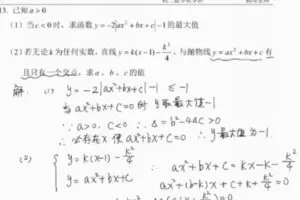 13. 已知a>0
(1) 当c<0时，求函数y=-2|ax²+bx+c|-1的最大值
(2) 若无论k为任何实数，直线y=k(x-1)-k²/4，与抛物线y=ax²+bx+c有
且只有一个交点，求a、b、c的值
解: (1) y=-2|ax²+bx+c|-1 ≤ -1
当ax²+bx+c=0时 y取最大值-1
∵a>0. c<0 ∴Δ=b²-4ac>0
∴必存在x使ax²+bx+c=0 ∴y最大值为-1.
(2) { y=k(x-1)-k²/4 ∴ ax²+bx+c=kx-k-k²/4
y=ax²+bx+c ax²+(b-k)x+c+k+k²/4=0